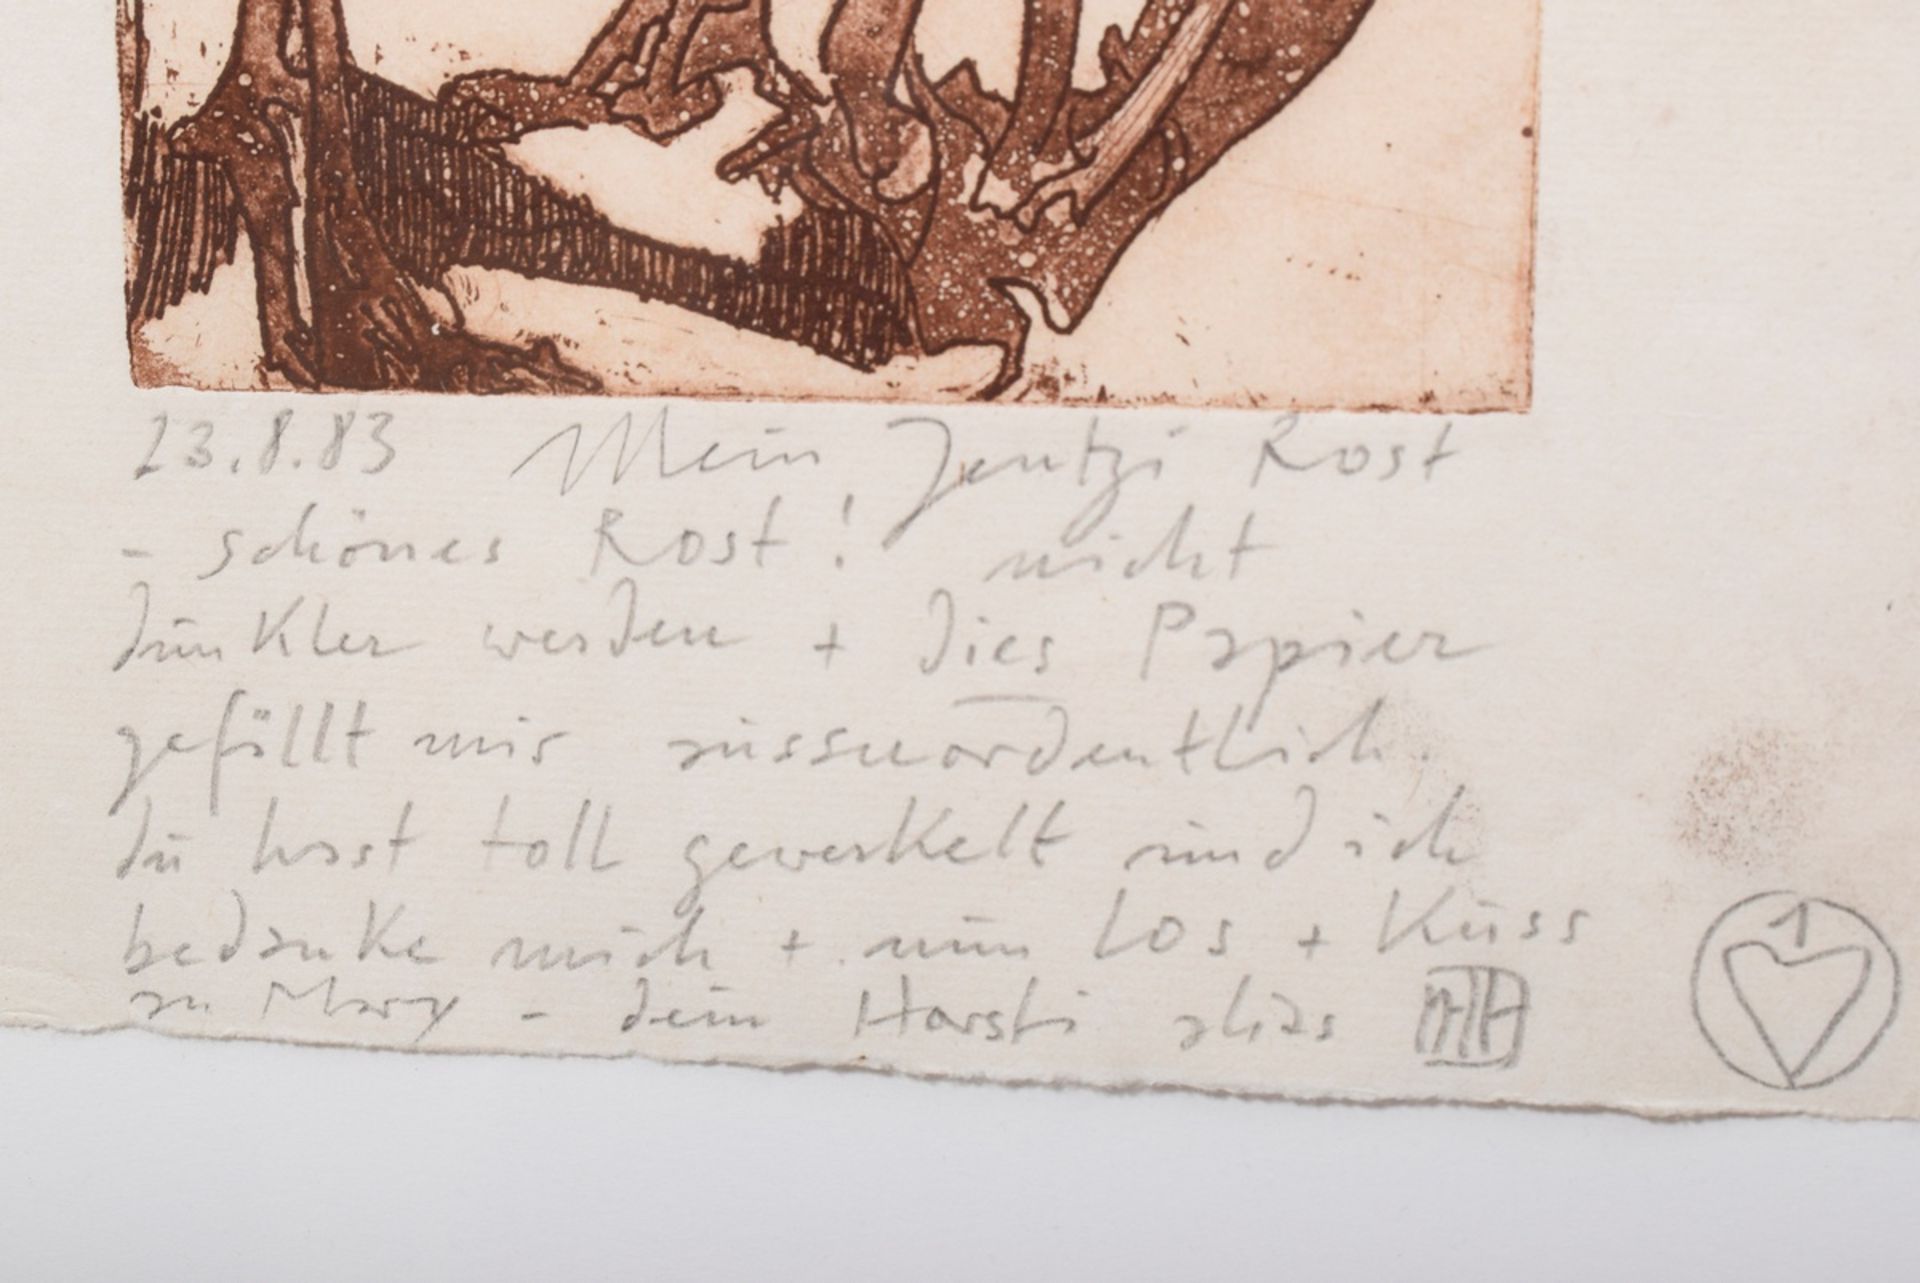 23.8.83 Mein Jentzi Rost
- schönes Rost! nicht
dunkler werden + dies Papier
gefällt mir ausserordentlich.
du hast toll gewerkelt und ich
bedanke mich + nun los + Kuss
an Mary - dein Horsti alias HJ
1